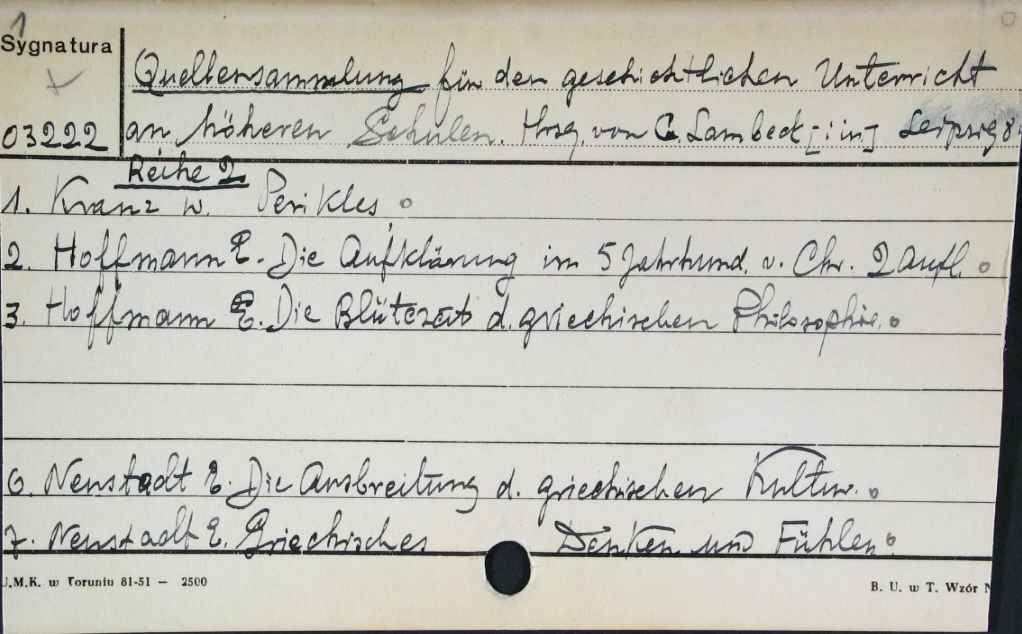 1
Sygnatura
Quellensammlung für den geschichtlichen Unterricht
03222 an höheren Schulen. Hrsg. von G. Lambeck [i in] Leipzig 8.
Reihe 2
1. Kranz W. Perikles
2. Hoffmann E. Die Aufklärung im 5 Jahrhund. v. Chr. 2 Aufl.
3. Hoffmann E. Die Blütezeit d. griechischen Philosophie.
6. Neustadt E. Die Ausbreitung d. griechischen Kultur.
7. Neustadt E. Griechisches Denken und Fühlen
U.M.K. w Toruniu 81-51 — 2500
B. U. w T. Wzór